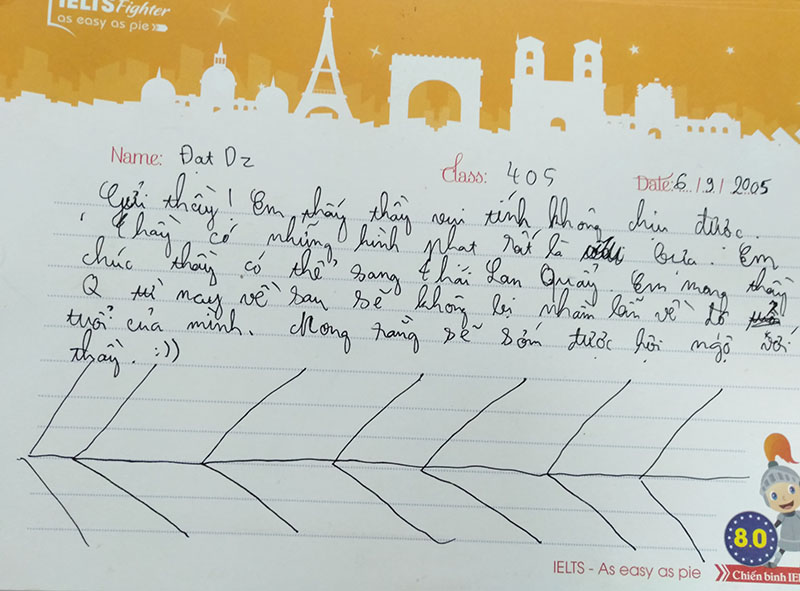 IELTS Fighter
as easy as pie
Name: Đạt Dz
Class: 405
Date: 6/9/2005
Gửi thầy! Em thấy thầy vui tính không chịu được.
Thầy có những hình phạt rất là bựa. Em
chúc thầy có thể sang Thái Lan Quẩy. Em mong thầy
Q từ nay về sau sẽ không bị nhầm lẫn về độ
tuổi của mình. Mong rằng sẽ sớm được hội ngộ với
thầy. :))
8.0
IELTS - As easy as pie
Chiến binh IE